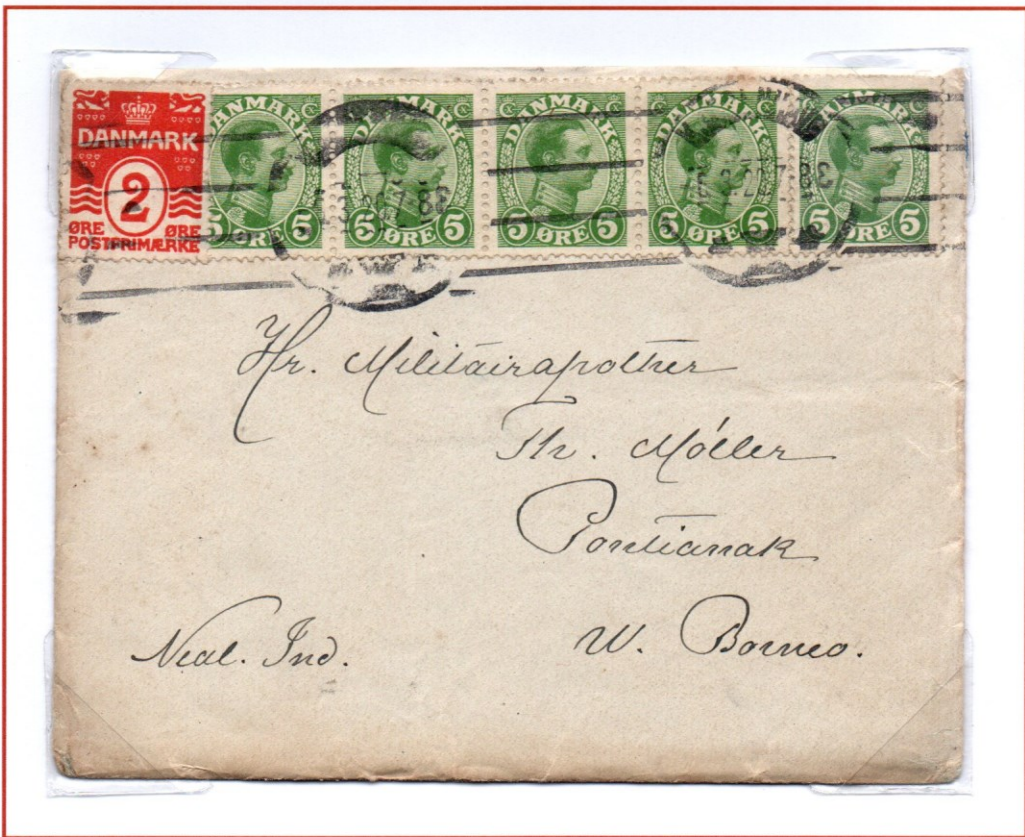 DANMARK
2
ØRE ØRE
POSTFRIMÆRKE
DANMARK
5 ØRE 5
DANMARK
5 ØRE 5
DANMARK
5 ØRE 5
DANMARK
5 ØRE 5
DANMARK
5 ØRE 5
Hr. Militairapotker
Th. Móller
Pontianak
W. Borneo.
Nedl. Ind.